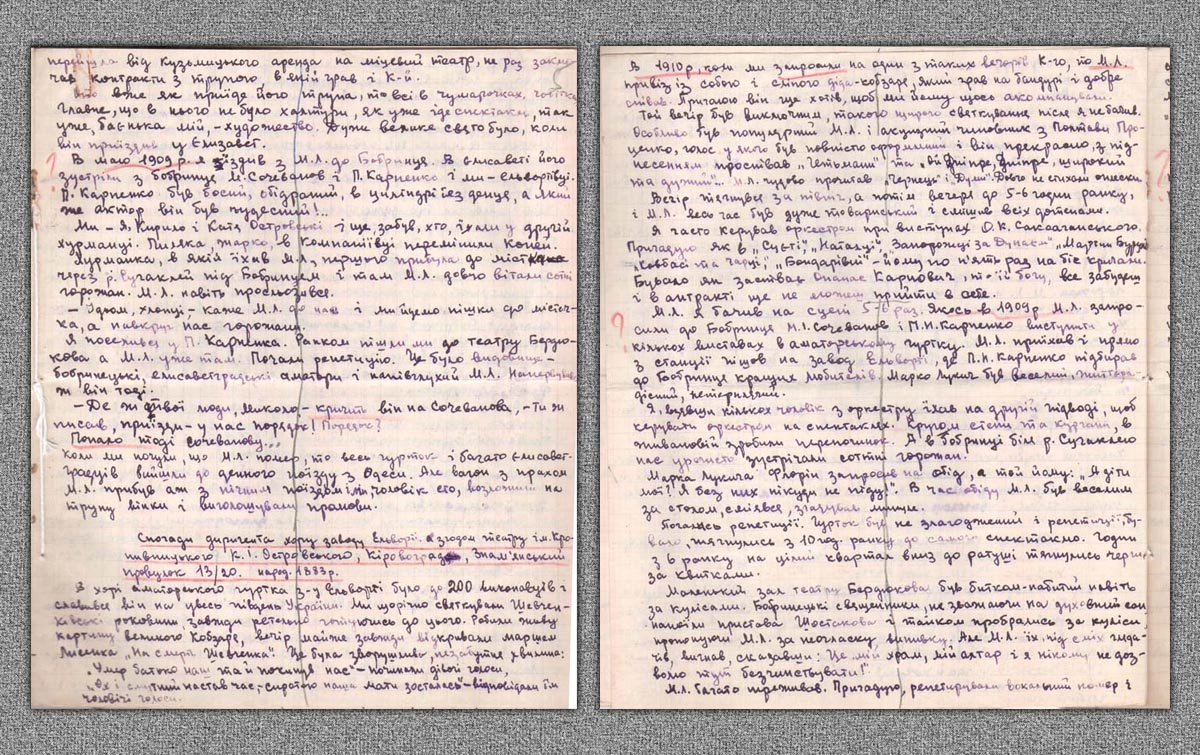 перейшла від Кузьмицького аренда на місцевий театр, не раз заклю
чав контракти з трупою, в якій грав і К-й.
вже як приїде його трупа, то всі в чумарочках, чобітка
главне, що в нього не було халтури, як уже іде спектакль, так
уже, батенька мій, - художество. Дуже велике свято було, коли
він приїздив у Єлизавет.
В маю 1909 р. я їздив з М.Л. до Бобринця. В Єлисаветі його
зустріли з бобринця М. Сочеванов і П. Карпенко і ми - ельвортівці.
П. Карпенко був босий, обідраний, в циліндрі без денця, а який
же актор він був чудесний!..
Ми - я, Кирило і Катя Островські і ще, забув, хто, їхали у другій
хурманці. Пилюка, жарко, в компаніївці перемінили коней.
Хурманка, в якій їхив М.Л. першого прибула до міст
через р. Сугаклей під Бобринцем і там М.Л. довго вітали сотні
горожан. М.Л. навіть прослюзився.
- Ходом, хлопці, - каже М.Л. до нас і ми йдемо пішки до містеч-
ка, а навкруг нас горожани.
Я поселився у П. Карпенка. Ранком пішли ми до театру Бердю-
кова а М.Л. уже там. Почали репетицію. Це було видовище -
бобринецькі, єлисаветградські аматори і напівглухий М.Л. Нанервував
ж він тоді.
- Де ж твої люди, Миколо, - кричить він на Сочеванова, - Ти ж
писав, приїзди - у нас порядок! Порядок?
Попало тоді Сочеванову...
Коли ми почули, що М.Л. помер, то весь гурток і багато Єлисавет-
градців вийшли до денного поїзду з Одеси. Але вагон з прахом
М.Л. прибув аж з нічним поїздом і ми, чоловік сто, возложили на
труну вінки і виголошували промови.
Спогади диригента хору заводу Ельворті, а згодом театру ім. Кро-
пивницького / К.І. Островського, Кіровоград, Знам'янський
провулок 13/20. народ. 1883 р.
В хорі аматорського гуртка з-у Ельворті було до 200 виконавців і
славився він на увесь південь України. Ми щорічно святкували Шевчен-
ківські роковини завжди ретельно готуючись до цього. Робили живу
картину великого Кобзаря, вечір майже завжди відкривали маршем
Лисенка "На смерть Шевченка". Це була зворушлива, незабутня хвилина:
"Умер батько наш та й покинув нас" - починали дівочі голоси,
"Ох і смутний настав час, - сиротою наша мати зосталась" - відповідали їм
чоловічі голоси.
В 1910 р, коли ми запросили на один з таких вечорів К-го, то М.Л.
привіз із собою і сліпого діда-кобзаря, який грав на бандурі і добре
співав. Причому він ще хотів, щоб ми йому щось акомпанували.
Той вечір був виключним, такого щирого святкування після я не бачив.
Особливо був популярний М.Л. і акцизний чиновник з Полтави Про-
ценко, голос у якого був повністю оформлений і він прекрасно, з під-
несенням проспівав "Гетьмани" та "Ой Дніпре, Дніпре, широкий
та дужий"... М.Л. чудово прочитав "Чернець" і "Думи". Довго не стихали оплески.
Вечір тягнувся за північ, а потім вечеря до 5-6 годин ранку,
і М.Л. весь час був дуже товариський і смішив всіх дотепами.
Я часто керував оркестром при виступах О.К. Саксаганського.
Пригадую як в "Суєті", "Наталці", "Запорожці за Дунаєм", "Мартин Боруля"
"Ковбасі та чарці", "Бондарівні" - йому по п'ять раз на біс кричали.
Бувало як заспіває Опанас Карпович, то їй богу, все забудеш
і в антракті ще не можеш прийти в себе.
М.Л. я бачив на сцені 5-6 раз. Якось в 1909 р. М.Л. запро-
сили до Бобринця М.І. Сочеванов і П.Н. Карпенко виступити у
кількох виставах в аматорському гуртку. М.Л. приїхав і прямо
з станції пішов на завод Ельворті, де П.Н. Карпенко підбирав
до Бобринця кращих любителів. Марко Лукич був веселий, життєра-
дісний, нетерплячий.
Я, взявши кілька чоловік з оркестру їхав на другій підводі, щоб
керувати оркестром на спектаклях. Кругом степи та кургани, в
живановій зробили перепочинок. А в бобринці біля р. Сугаклею
нас урочисто зустрічали сотні горожан!
Марка Лукича Флорін запросив на обід, а той йому: "А діти
мої? Я без них нікуди не піду!". В час обіду М.Л. був веселим
за столом, сміявся, згадував минуле.
Почались репетиції. Гурток був не злагоджений і репетиції, бу-
вало, тягнулись з 10 год. ранку до самого спектаклю. Годин
з 6 ранку на цілий квартал вниз до ратуші тягнулись черги
за квитками.
Маленький зал театру Бердюкова був битком-набитий навіть
за кулісами. Бобринецькі священики, не зважаючи на духовний сан
напоїли пристава Шостакова і тайком пробрались за куліси,
пропонуючи М.Л. за негласку, випивку. Але М.Л. їх, під сміх гляда-
чів, вигнав, сказавши: "Це мій храм, мій алтар і я нікому не доз-
волю тут безчинствувати!".
М.Л. багато переживав. Пригадую, репетирували вокальний номер і